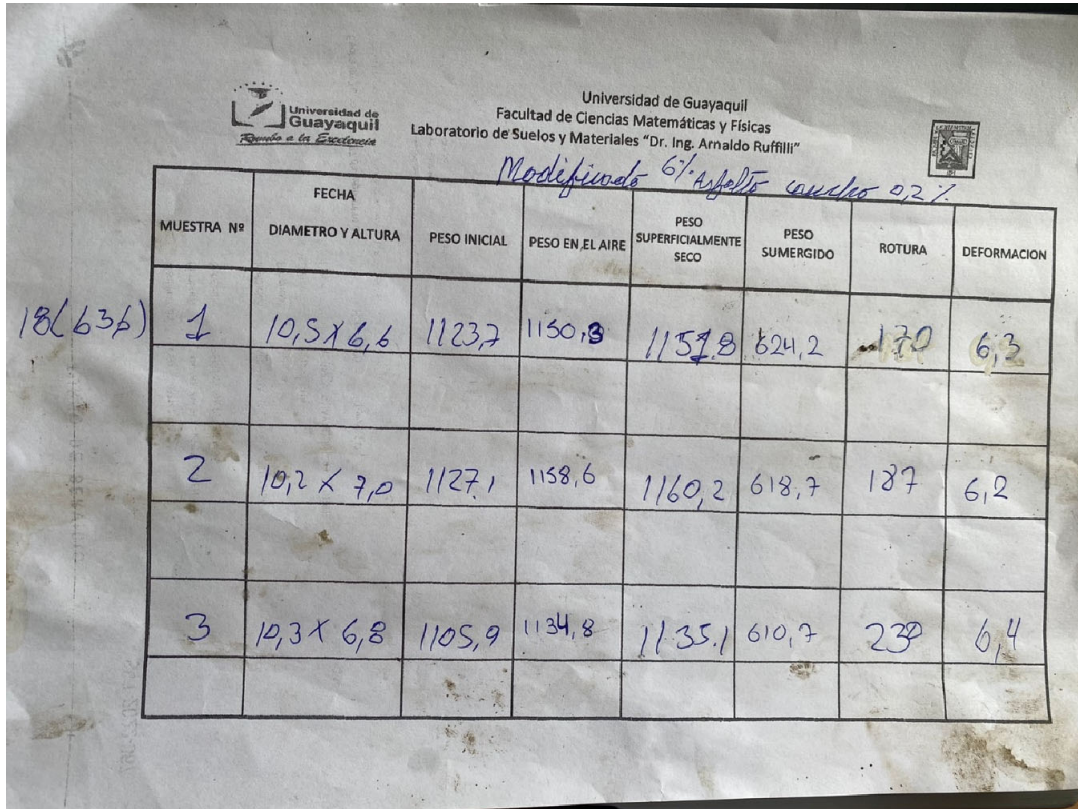 Universidad de
Guayaquil
Rumbo a la Excelencia
Universidad de Guayaquil
Facultad de Ciencias Matemáticas y Físicas
Laboratorio de Suelos y Materiales "Dr. Ing. Arnaldo Ruffilli"
Modificado 6% Asfalto caucho 0,2%
MUESTRA Nº
FECHA
DIAMETRO Y ALTURA
PESO INICIAL
PESO EN EL AIRE
PESO
SUPERFICIALMENTE
SECO
PESO
SUMERGIDO
ROTURA
DEFORMACION
1 10,5 X 6,6 1123,7 1150,3 1151.8 624,2 170 6,3
2 10,2 X 7,0 1127,1 1158,6 1160,2 618,7 187 6,2
3 10,3 X 6,8 1105,9 1134,8 1135.1 610,7 6,4